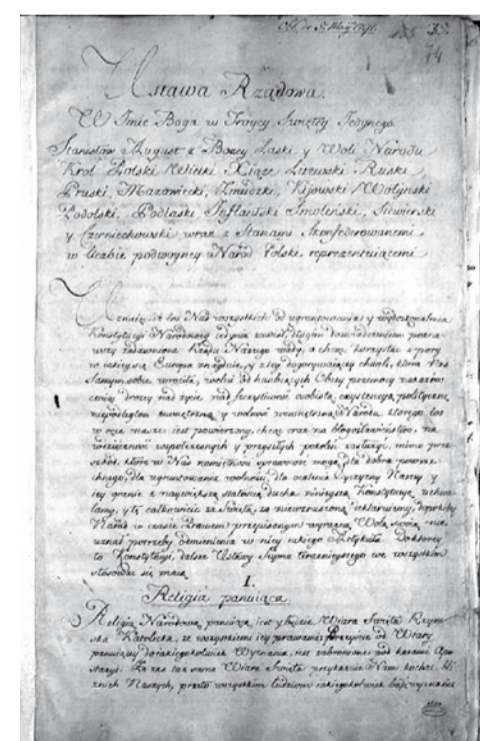 74
Ustawa Rządowa.
W Imie Boga w Troycy Swiętey Jedynego.
Stanisław August z Bożey Łaski y Woli Narodu
Krol Polski Wielki Xiąże Litewski, Ruski
Pruski, Mazowiecki, Zmudzki, Kijowski Wołyński
Podolski, Podlaski, Inflantski Smoleński, Siewierski
y Czerniechowski wraz z Stanami Skonfederowanemi
w liczbie podwoyney Narod Polski reprezentuiącemi
Uznaiąc, iż los Nas wszystkich od ugruntowania y wydoskonalenia
Konstytucyi Narodowey iedynie zawisł, długim doswiadczeniem pozna-
wszy zadawnione Rządu Naszego wady, a chcąc korzystać z pory
w iakiey się Europa znayduie, y z tey dogorywaiącey chwili, ktora Nas
samym sobie wrociła, wolni od hanbiących Obcey przemocy nakazow
ceniąc drożey nad życie, nad szczęsliwosc osobistą, exystencyą polityczną
niepodległosc zewnętrzną y wolnosc wewnętrzną Narodu, ktorego los
w ręce nasze iest powierzony, chcąc oraz na błogosławienstwo, na
wdzięcznosc wspołczesnych y przyszłych pokolen zasłużyć, mimo prze-
szkod, ktore w Nas namiętnosci sprawowac mogą, dla dobra powsze-
chnego, dla ugruntowania wolnosci, dla ocalenia Oyczyzny Naszey y
iey granic z naywiększą stałoscią ducha ninieyszą Konstytucyę uchwa-
lamy, y tę całkowicie za Swiętą, za niewzruszoną deklaruiemy, dopokiby
Narod w czasie Prawem przepisanym wyrazną Wolą swoią nie
uznał potrzeby odmienienia w niey iakiego Artykułu. Do ktorey
to Konstytucyi, dalsze Ustawy Seymu teraznieyszego we wszystkim
stosowac się maią.
I.
Religia panuiąca.
Religią Narodową panuiącą iest y będzie Wiara Swięta Rzym-
ska Katolicka, ze wszystkiemi iey prawami. Przeyscie od Wiary
panuiącey do iakiegokolwiek Wyznania, iest zabronione pod karami Apo-
stazyi. Ze zas ta sama Wiara Swięta przykazuie Nam kochac bli-
znich Naszych, przeto wszystkim ludziom iakiegokolwiek bądz wyznania